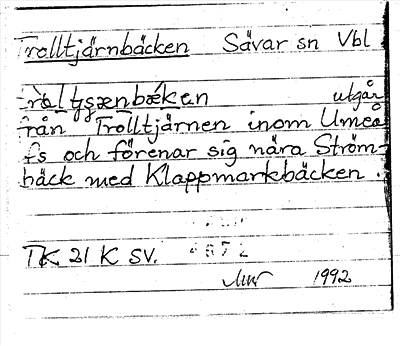 Trolltjärnbäcken Sävar sn Vbl
utgår
från Trolltjärnen inom Umeå
fs och förenar sig nära Ström-
bäck med Klappmarkbäcken.
TK 21 K SV. 4672
1992